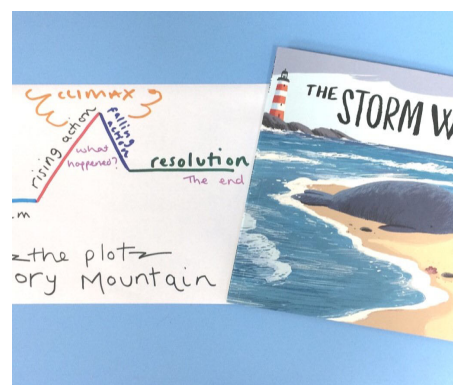 CLIMAX
rising action
falling action
what
happened?
resolution
The end
the plot
ory Mountain
THE STORM W